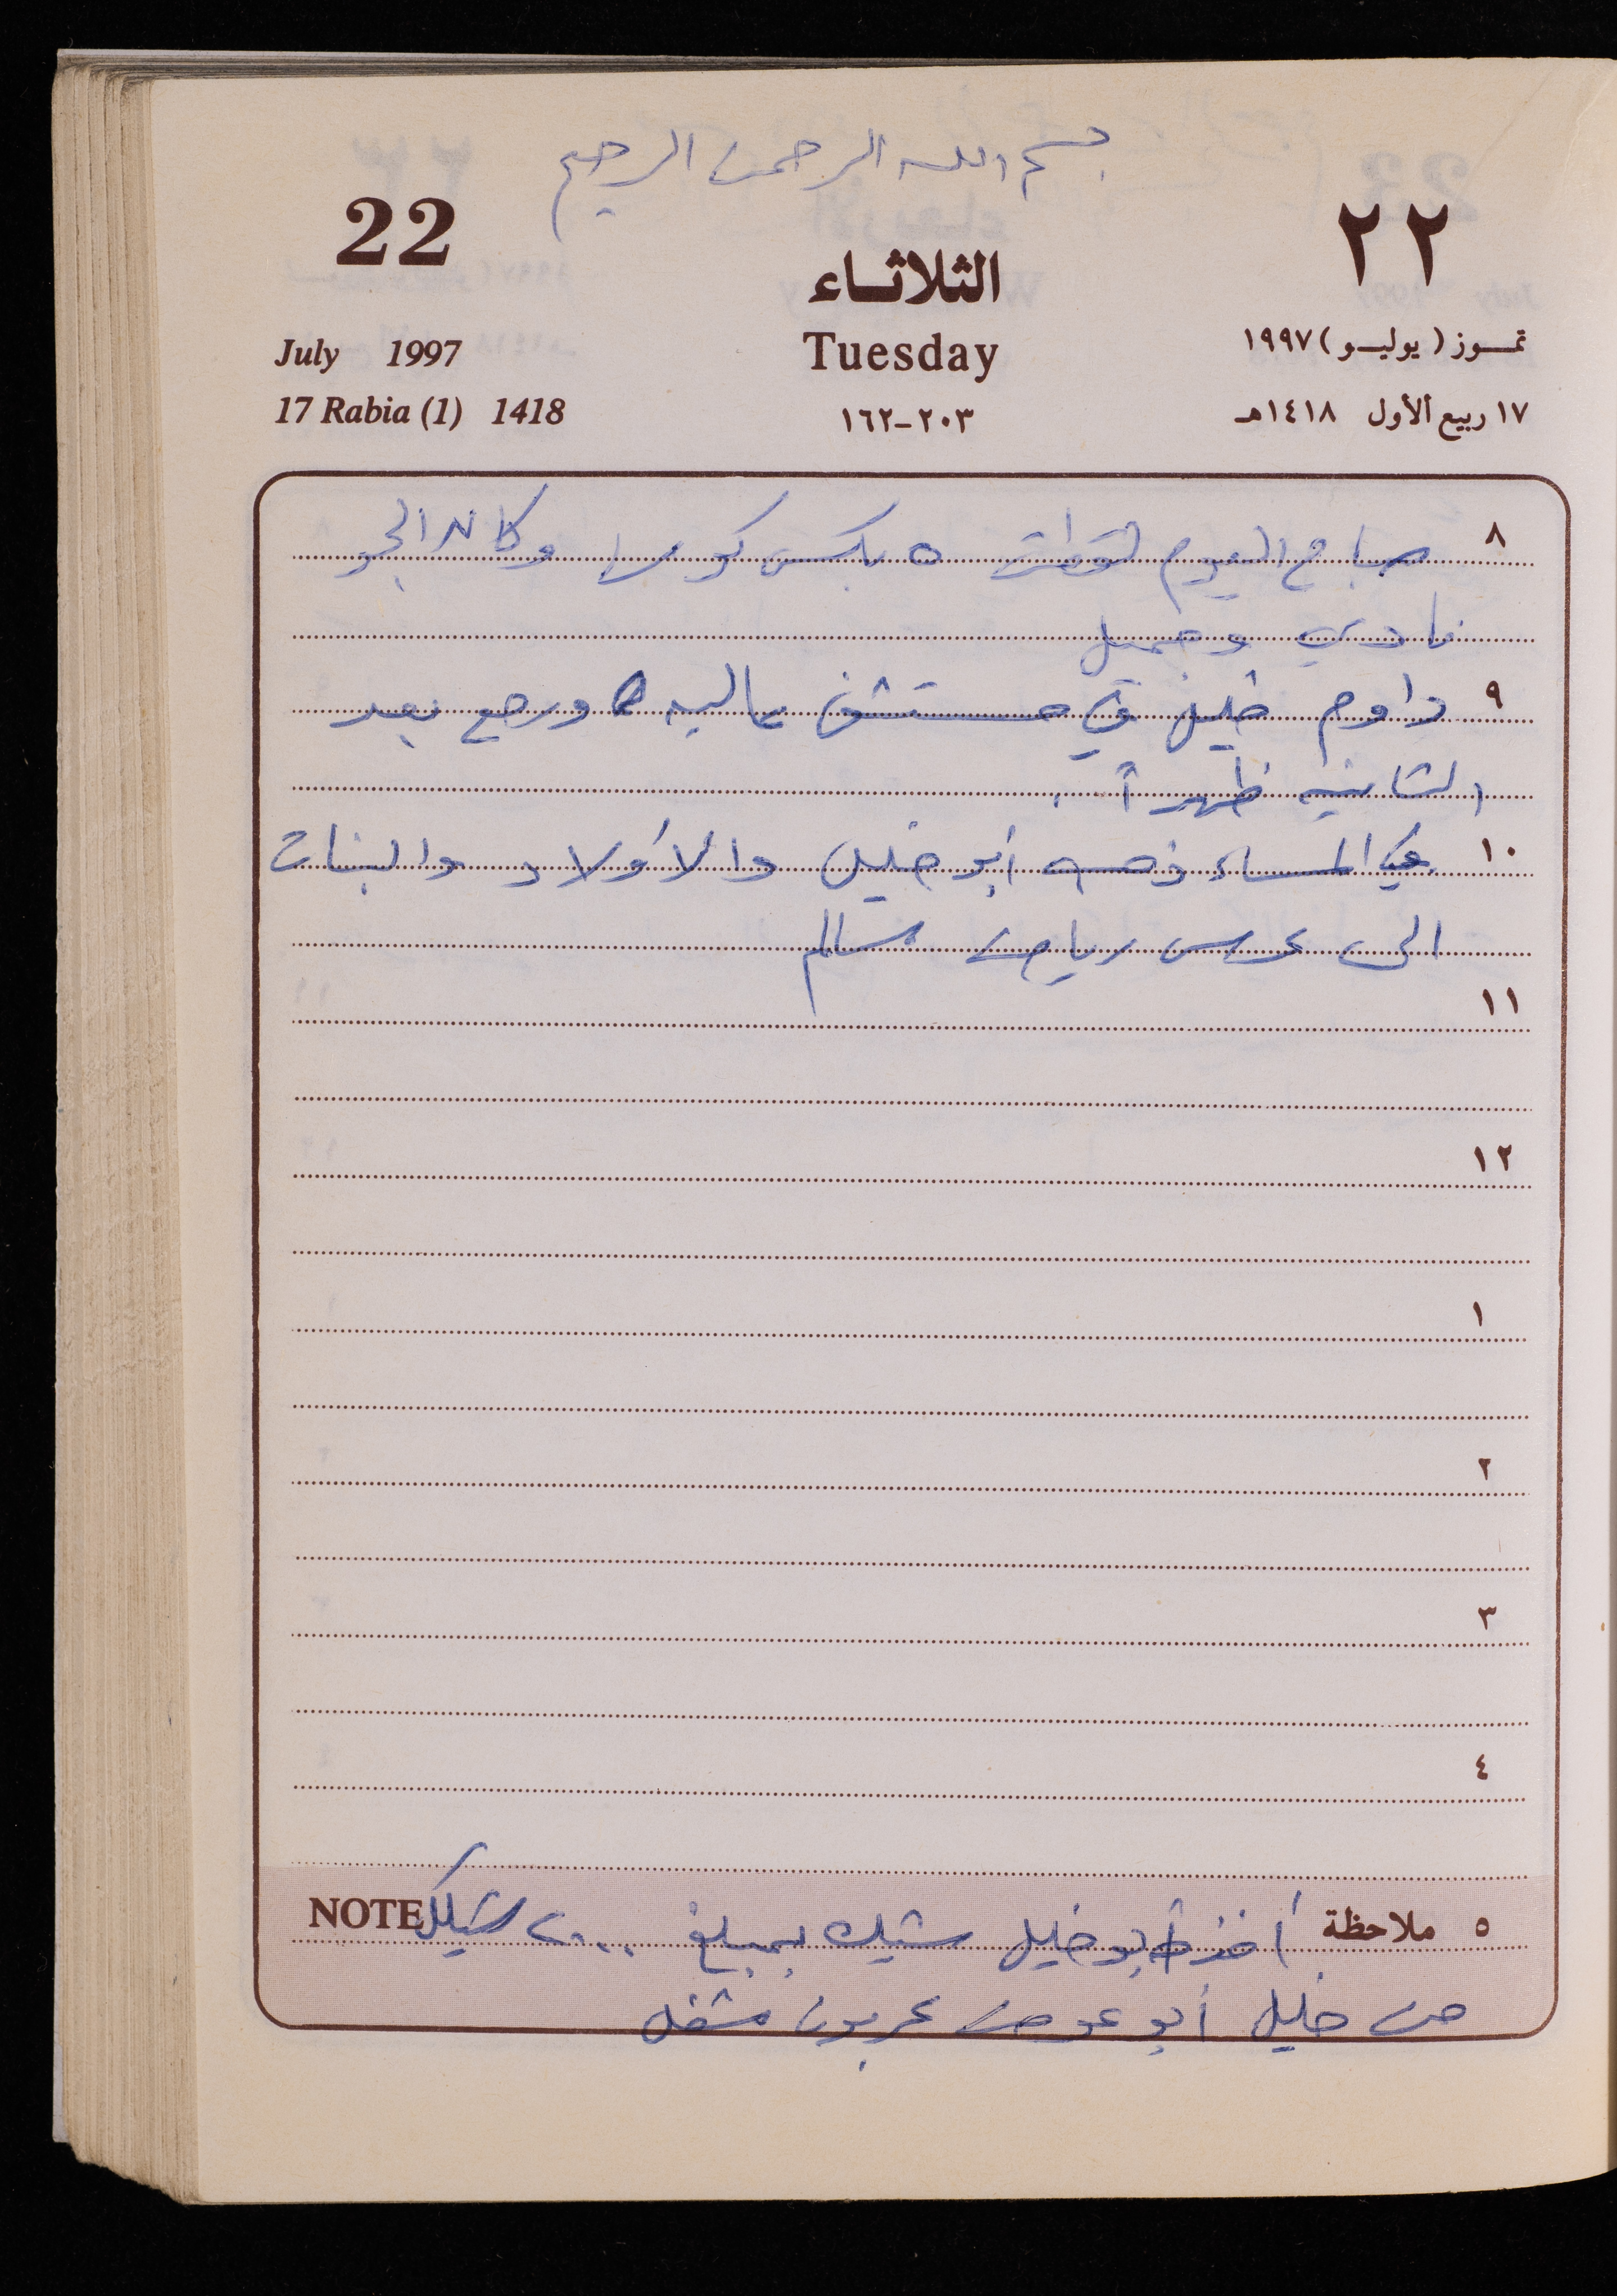 بسم الله الرحمن الرحيم
22
٢٢
الثلاثاء
July 1997
Tuesday
تموز (يوليو) ١٩٩٧
17 Rabia (1) 1418
١٦٢-٢٠٣
١٧ ربيع الأول ١٤١٨هـ
٨ صباح اليوم لقطت ٥ بكس كوسا وكان الجو
نادي وجميل
٩ داوم خليل في مستشفى عاليه ورجع بعد
الثانية ظهراً.
١٠ في المساء ذهب أبو خليل والأولاد والبنات
الى عرس رياض سالم
١١
١٢
١
٢
٣
٤
٥ ملاحظة أخذ أبو خليل شيك بمبلغ ٢٠٠٠ شيكل NOTE
من خليل أبو عوض عربون مشغل